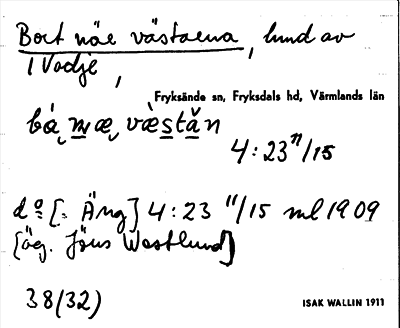 Bort näe västaena, lund av
i Vadje,
Fryksände sn, Fryksdals hd, Värmlands län
bá, mæ, væ̀stăn
4:23 11/15
do [: Äng] 4:23 11/15 ml 1909
[äg. Jöns Westlund]
38(32)
ISAK WALLIN 1911